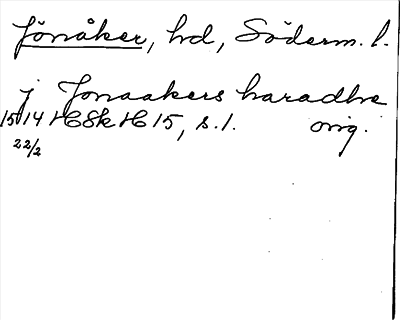 Jönåker, hd, Söderm. l.
j Jonaakers haradhe
1514 HSH 15, s. 1. orig.
22/2